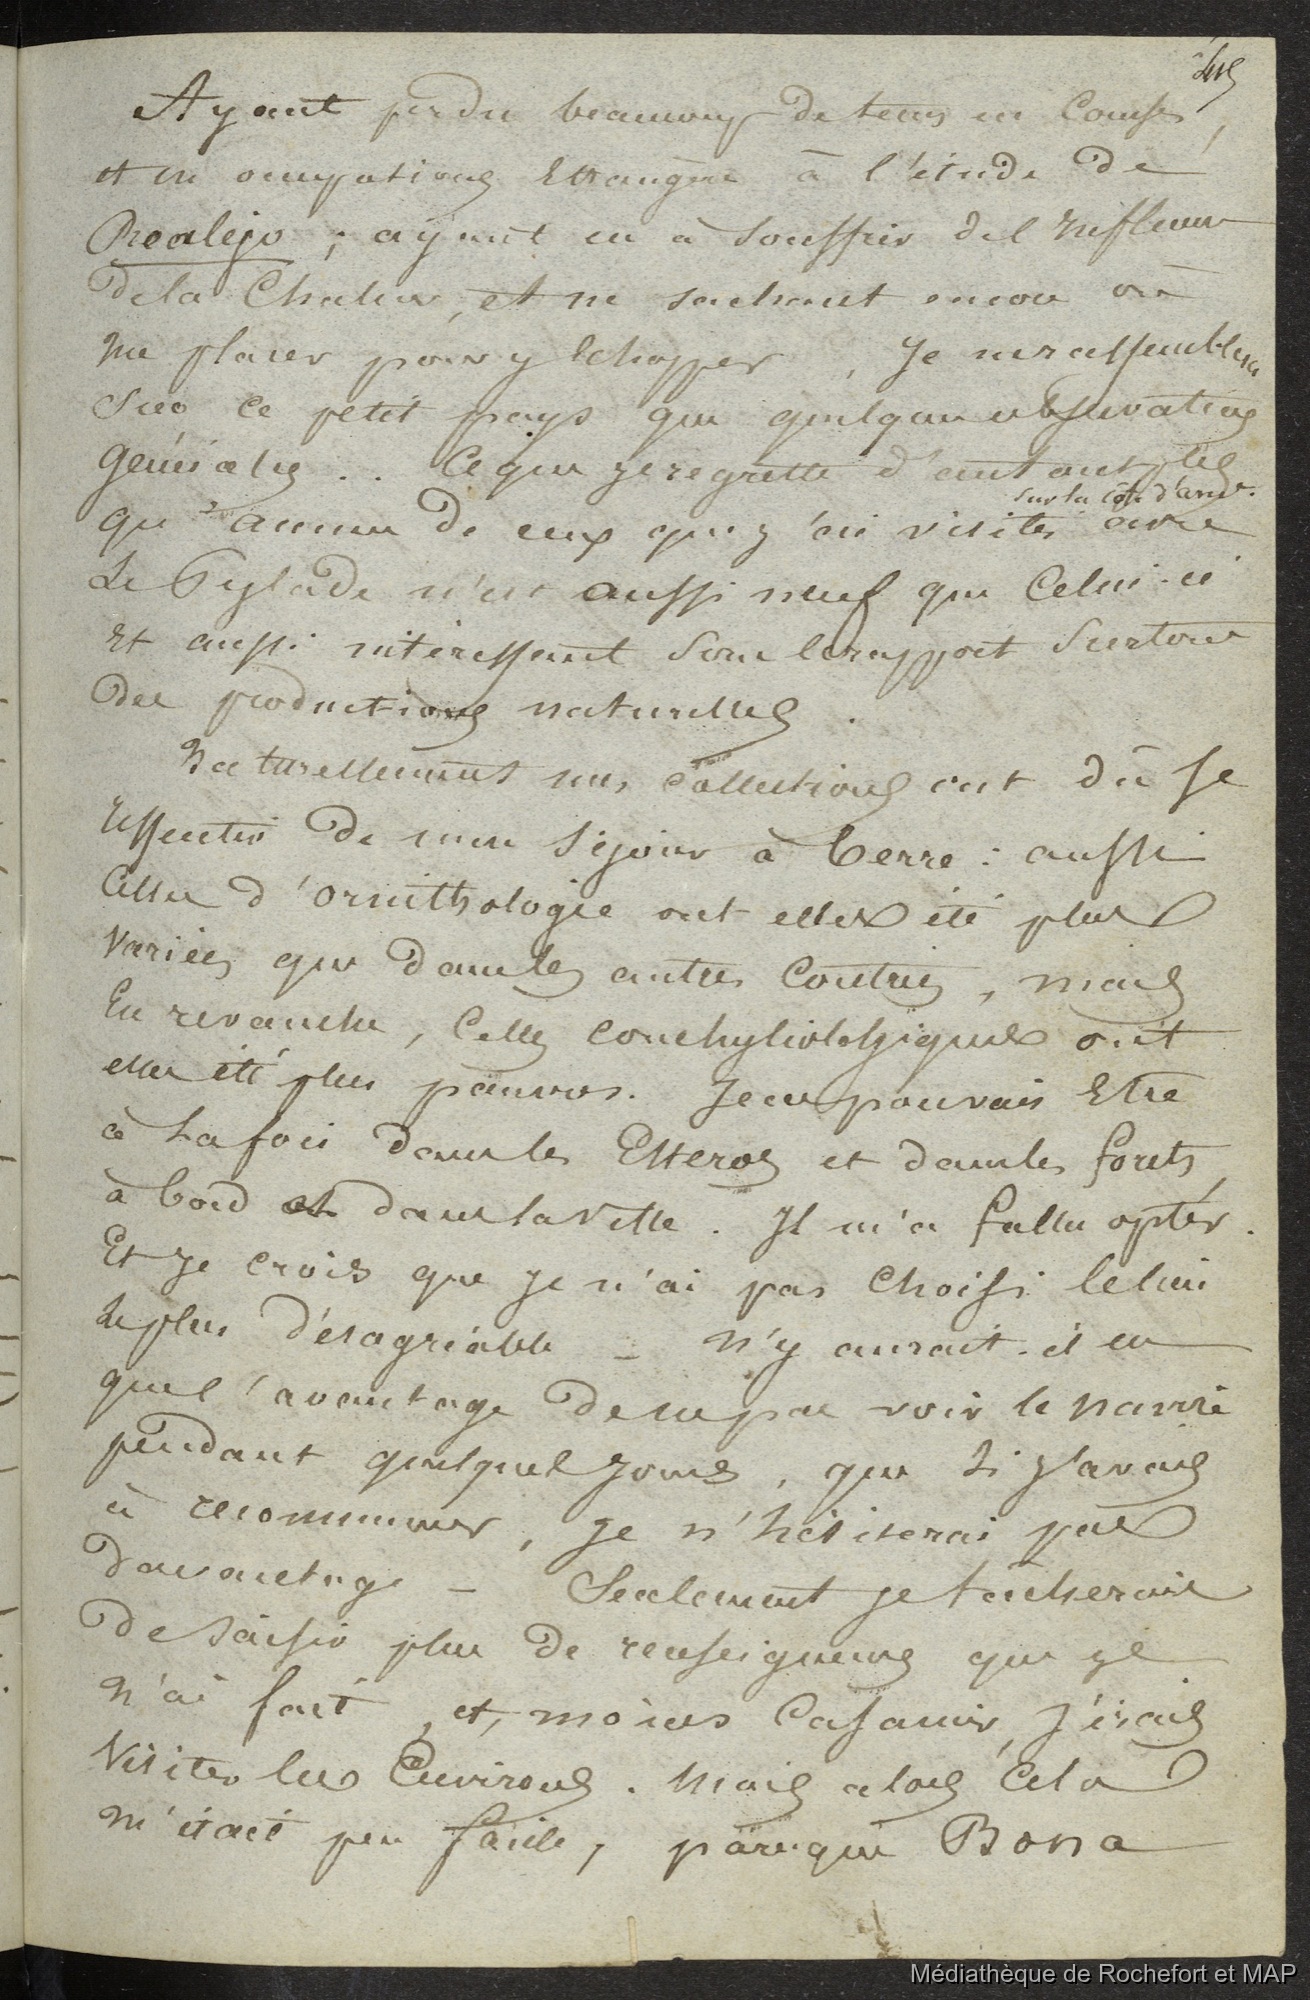 Ayant perdu beaucoup de tems en Courses,
et en occupations Etrangères à l'étude de
Realejo ; ayant eu à souffrir de l'influence
de la Chaleur, et ne sachant encore où
me placer pour y Echapper, Je ne rassemblerai
sur ce petit pays que quelques observations
générales .. Ce que je regrette d'autant plus
sur la Côte d'amér.
qu'aucun de ceux que j'ai visités avec
Le Pylade n'est aussi neuf que Celui-ci
Et aussi intéressant Sous le rapport Surtout
des productions naturelles .
Naturellement mes Collections ont dû se
ressentir de mon Séjour à terre : aussi
Celles d'ornithologie ont elles été plus
Variées que dans les autres Contrées, mais
En revanche, Celles conchyliologiques ont
elles été plus pauvres. Je ne pouvais Etre
à la fois dans les Esteros et dans les forets,
à bord et dans la Ville. Il m'a fallu opter.
Et Je crois que Je n'ai pas Choisi le lieu
Le plus désagréable _ N'y aurait-il eu
que l'avantage de ne pas voir le navire
pendant quelques Jours, que Si J'avais
à recommencer, Je n'hésiterai pas
davantage _ Seulement je tacherais
de Saisir plus de renseignemens que je
n'ai fait, et, moins Casanier, J'irais
Visiter les Environs. Mais alors Cela
m'était peu facile, parceque Bona
Médiathèque de Rochefort et MAP